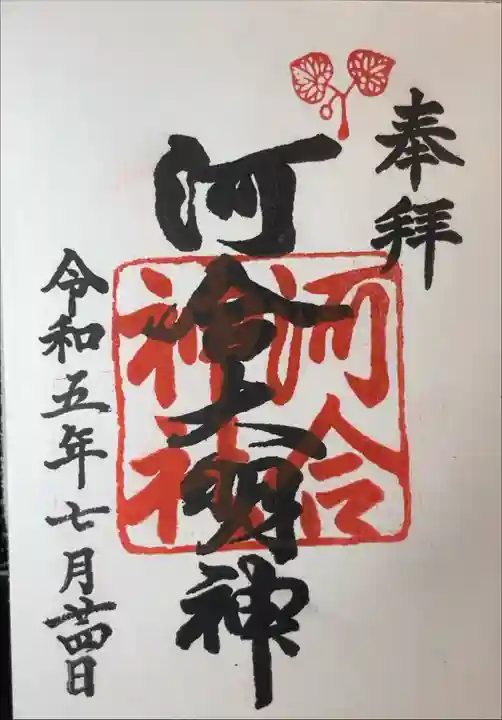 奉拝
河合神社
河合大明神
令和五年七月廿四日